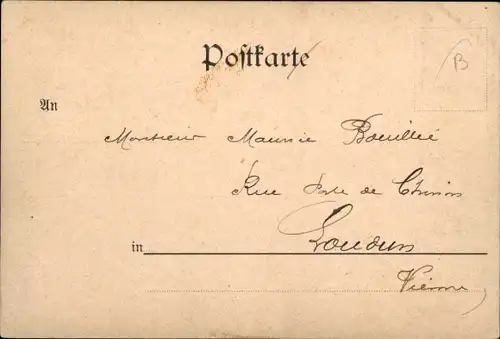 Postkarte
B
An
Monsieur Maurice Bouillé
Rue Porte de Chinon
in Loudun
Vienne